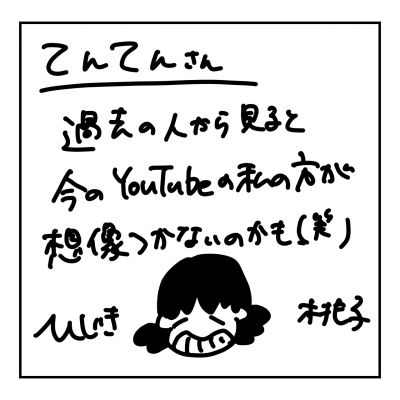 てんてんさん
過去の人から見ると
今のYouTubeの私の方が
想像つかないのかも(笑)
ひじき
桃子